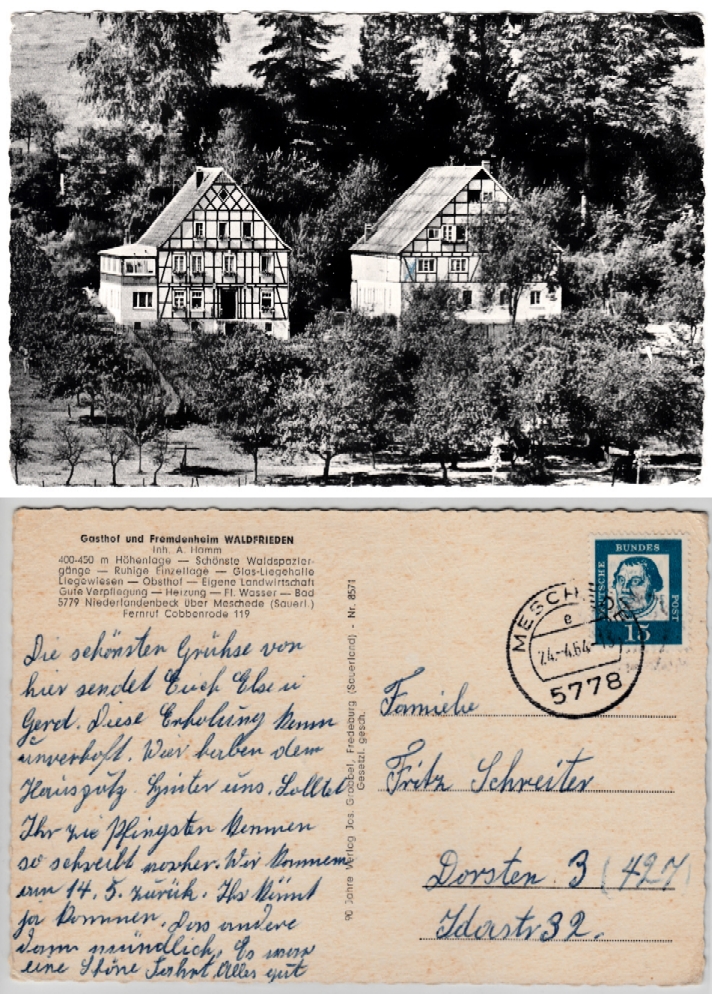 Gasthof und Fremdenheim WALDFRIEDEN
Inh. A. Hamm
400-450 m Höhenlage — Schönste Waldspazier-
gänge — Ruhige Einzellage — Glas-Liegehalle
Liegewiesen — Obsthof — Eigene Landwirtschaft
Gute Verpflegung — Heizung — Fl. Wasser — Bad
5779 Niederlandenbeck über Meschede (Sauerl.)
Fernruf Cobbenrode 119
Die schönsten Grühse von
hier sendet Euch Else u
Gerd. Diese Erholung kamm
unverhoft. Wir haben dem
Hausputz hinter uns. Solltet
Ihr zie Pfingsten kommen
so schreibt vorher. Wir kommem
am 14. 5. zurück. Ihr könnt
ja kommen. Das andere
dann mündlich. Es war
eine Schöne Fahrt. Alles gut
90 Jahre Verlag Jos. Grobbel, Fredeburg (Sauerland) - Nr. 8571
Gesetzl. gesch.
DEUTSCHE
BUNDES
POST
15
MESCHEDE
e
24.-4.64
5778
Familie
Fritz Schreiter
Dorsten 3 (427)
Idastr 32.